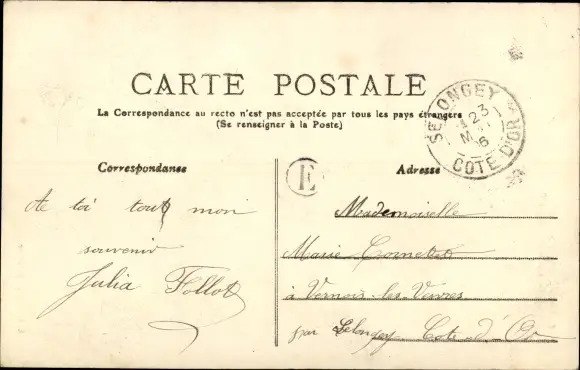 CARTE POSTALE
La Correspondance au recto n'est pas acceptée par tous les pays étrangers
(Se renseigner à la Poste)
SELONGEY
23
COTE D'OR
Correspondance
E
Adresse
de toi tout mon
souvenir
Julia Follot
Mademoiselle
Marie
à Vernois-les-Vesvres
par Selongey Cote d'Or